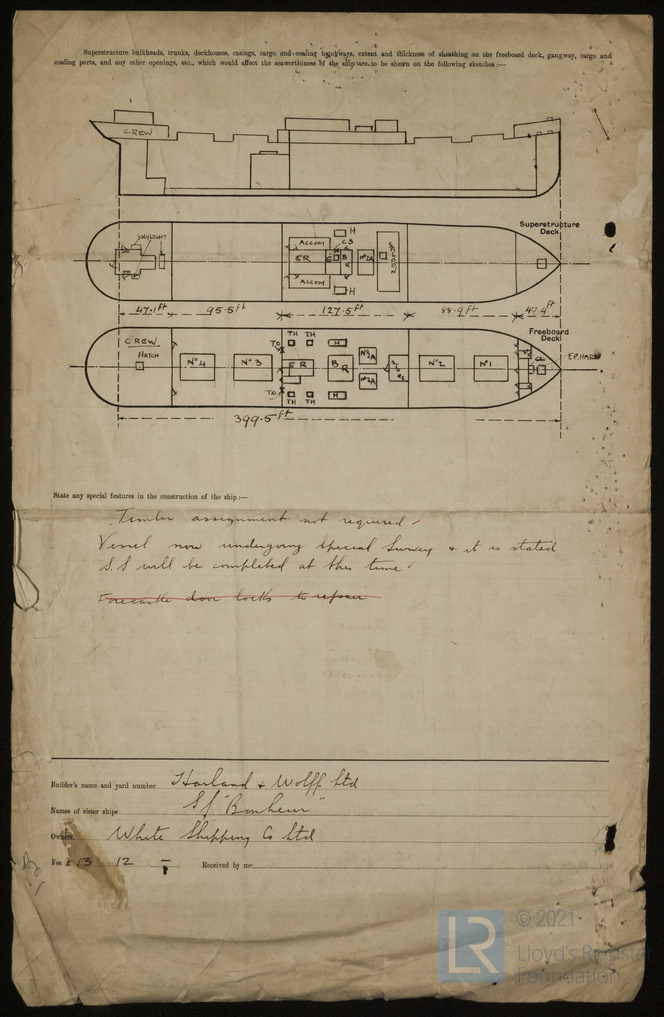 Superstructure bulkheads, trunks, deckhouses, casings, cargo and coaling hatchways, extent and thickness of sheathing on the freeboard deck, gangway, cargo and
coaling ports, and any other openings, etc., which would affect the seaworthiness of the ship are to be shown on the following sketches :—
CREW
Superstructure
Deck
SKYLIGHT
H
ACCOM
CS
ER
B
R
Nº2A
SALOON
ACCOM
H
47.1ft
95.5ft
127.5ft
88.9ft
47.4ft
Freeboard
Deck
CREW
HATCH
TO
TH
TH
H
Nº4
Nº3
ER
BR
Nº2A
Nº2A
STORE
Nº2
Nº1
CL
TO
TH
TH
H
399.5ft
State any special features in the construction of the ship :—
Timber assignment not required
Vessel now undergoing Special Survey & it is stated
S.S will be completed at this time
Forecastle door locks to repair
Builder's name and yard number Harland & Wolff Ltd
Names of sister ships "Bonheur"
Owners White Shipping Co Ltd
Fee £ 13 12 –
Received by me
LR
© 2021
Lloyd's Register
Foundation